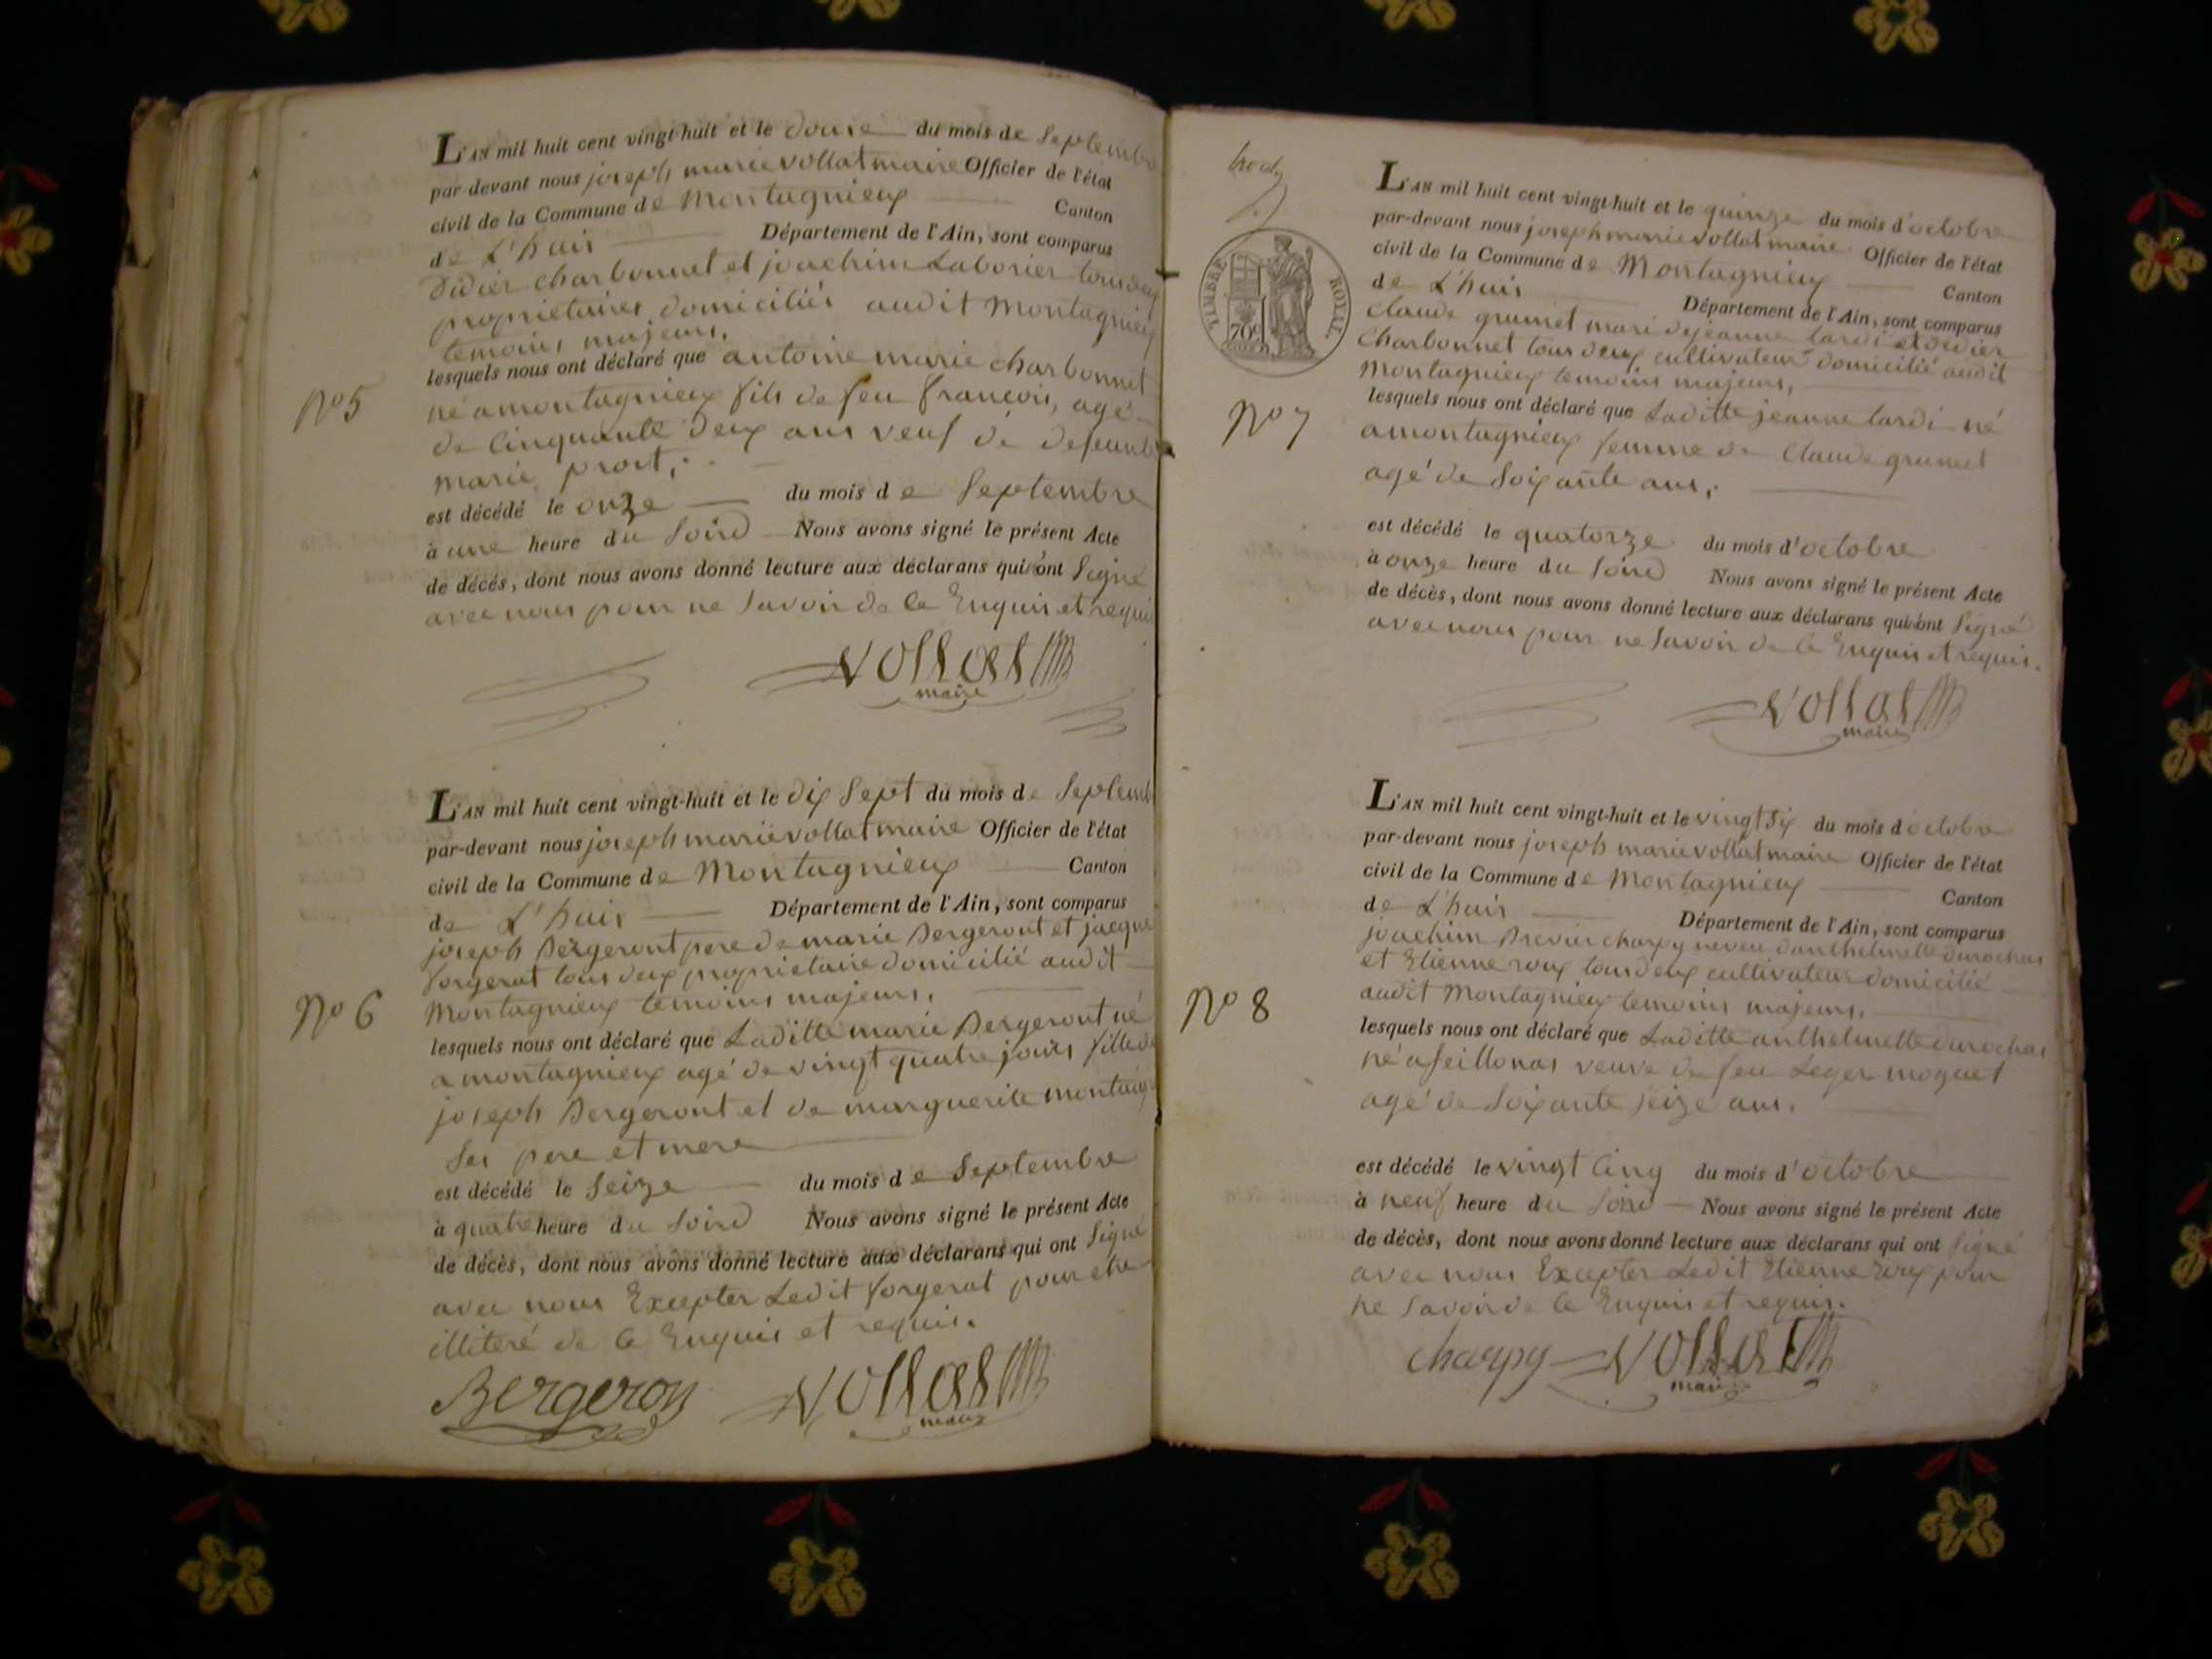 L'AN mil huit cent vingt-huit et le douse du mois de Septembre
par-devant nous joseph marie vollat maire Officier de l'état
civil de la Commune de Montagnieux Canton
de L'huis Département de l'Ain, sont comparus
Didier charbonnet et joachim Laborier tous deux
proprietaires domiciliés audit Montagnieux
temoins majeurs.
lesquels nous ont déclaré que antoine marie charbonnet
N° 5
né a montagnieux fils de feu francois, agé
de Cinquante Deux ans veuf de defeunte
marie prost,
est décédé le onze du mois de Septembre
à une heure du Soird Nous avons signé le présent Acte
de décés, dont nous avons donné lecture aux déclarans qui n'ont Signé
avec nous pour ne Savoir de ce Enquis et requis
vollat
maire
L'AN mil huit cent vingt-huit et le dix Sept du mois de Septemb
par-devant nous joseph marie vollat maire Officier de l'état
civil de la Commune de Montagnieux Canton
de L'huis Département de l'Ain, sont comparus
joseph Bergeront pere de marie Bergeront et jacque
forgerat tous deux proprietaire domicilié audit
N° 6
Montagnieux temoins majeurs.
lesquels nous ont déclaré que Laditte marie Bergeront né
a montagnieux agé de vingt quatre jours fille de
joseph Bergeront et de marguerite
Ses pere et mere
est décédé le Seize du mois de Septembre
à quatre heure du Soird Nous avons signé le présent Acte
de décès, dont nous avons donné lecture aux déclarans qui ont Signé
avec nous Excepter Ledit forgerat pour etre
illiteré de ce Enquis et requis.
Bergeron vollat
maire
TIMBRE ROYAL
70c
L'AN mil huit cent vingt-huit et le quinze du mois d'octobre
par-devant nous joseph marie vollat maire Officier de l'état
civil de la Commune de Montagnieux Canton
de L'huis Département de l'Ain, sont comparus
Claude grumet mari de jeanne tardi et didier
Charbonnet tous deux cultivateurs domicilié audit
Montagnieux temoins majeurs,
N° 7
lesquels nous ont déclaré que Laditte jeanne tardi né
a montagnieux femme de Claude grumet
agé de Soixante ans,
est décédé le quatorze du mois d'octobre
à onze heure du Soird Nous avons signé le présent Acte
de décès, dont nous avons donné lecture aux déclarans qui n'ont Signé
avec nous pour ne Savoir de ce Enquis et requis.
vollat
maire
L'AN mil huit cent vingt-huit et le vingt Six du mois d'octobre
par-devant nous joseph marie vollat maire Officier de l'état
civil de la Commune de Montagnieux Canton
de L'huis Département de l'Ain, sont comparus
joachim charpy neveu danthelmette durochas
et Etienne roux tous deux cultivateur domicilié
audit Montagnieux temoins majeurs.
N° 8
lesquels nous ont déclaré que Laditte anthelmette durochas
né a Seillonas veuve de feu Leger moquet
agé de Soixante Seize ans.
est décédé le vingt Cinq du mois d'octobre
à neuf heure du Soird Nous avons signé le présent Acte
de décès, dont nous avons donné lecture aux déclarans qui ont Signé
avec nous Excepter Ledit Etienne roux pour
ne Savoir de ce Enquis et requis.
charpy vollat
maire